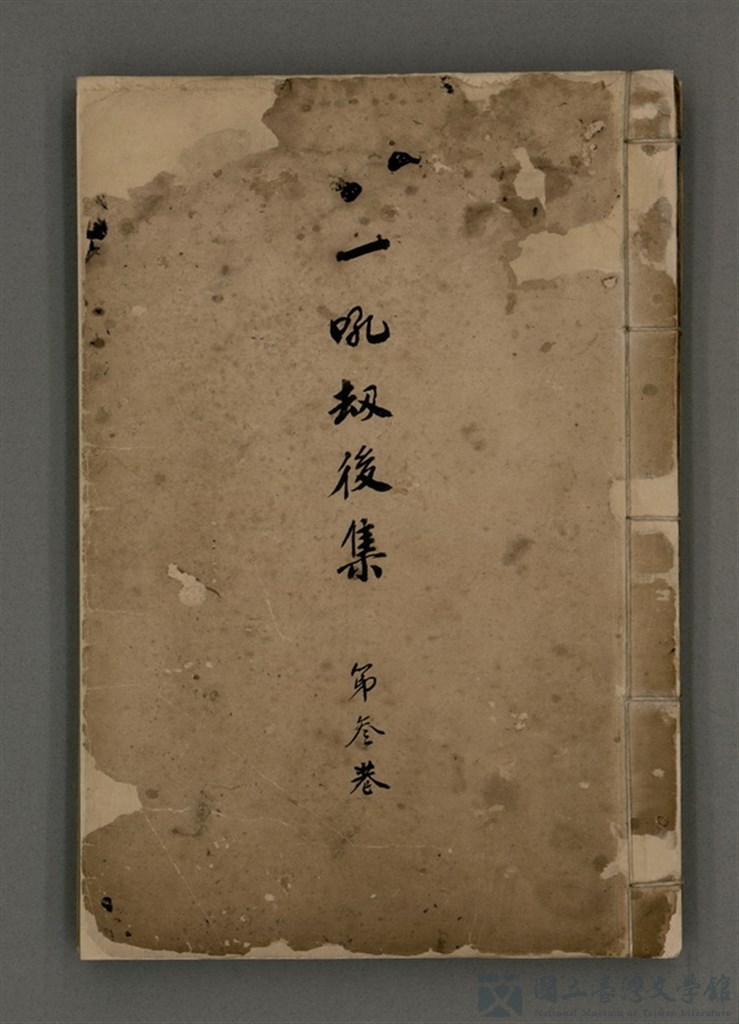 一吼劫後集
第叁巷
國立臺灣文學館
National Museum of Taiwan Literature